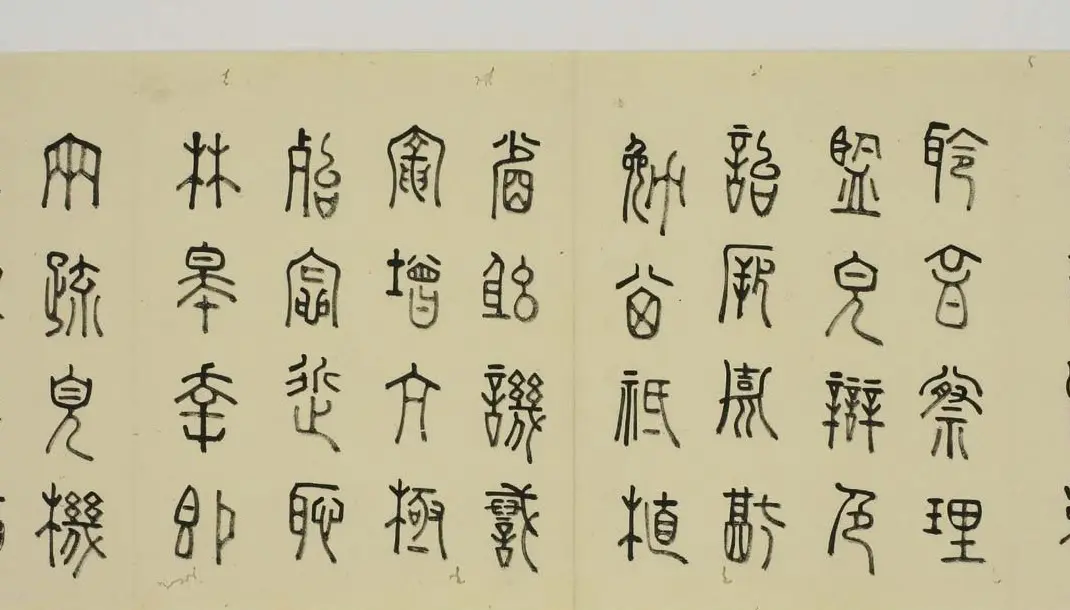 聆音察理
監皃辯色
詒厥嘉猷
勉其祗植
省躬譏誡
寵增亢極
殆辱近恥
林皋幸即
兩疏見機